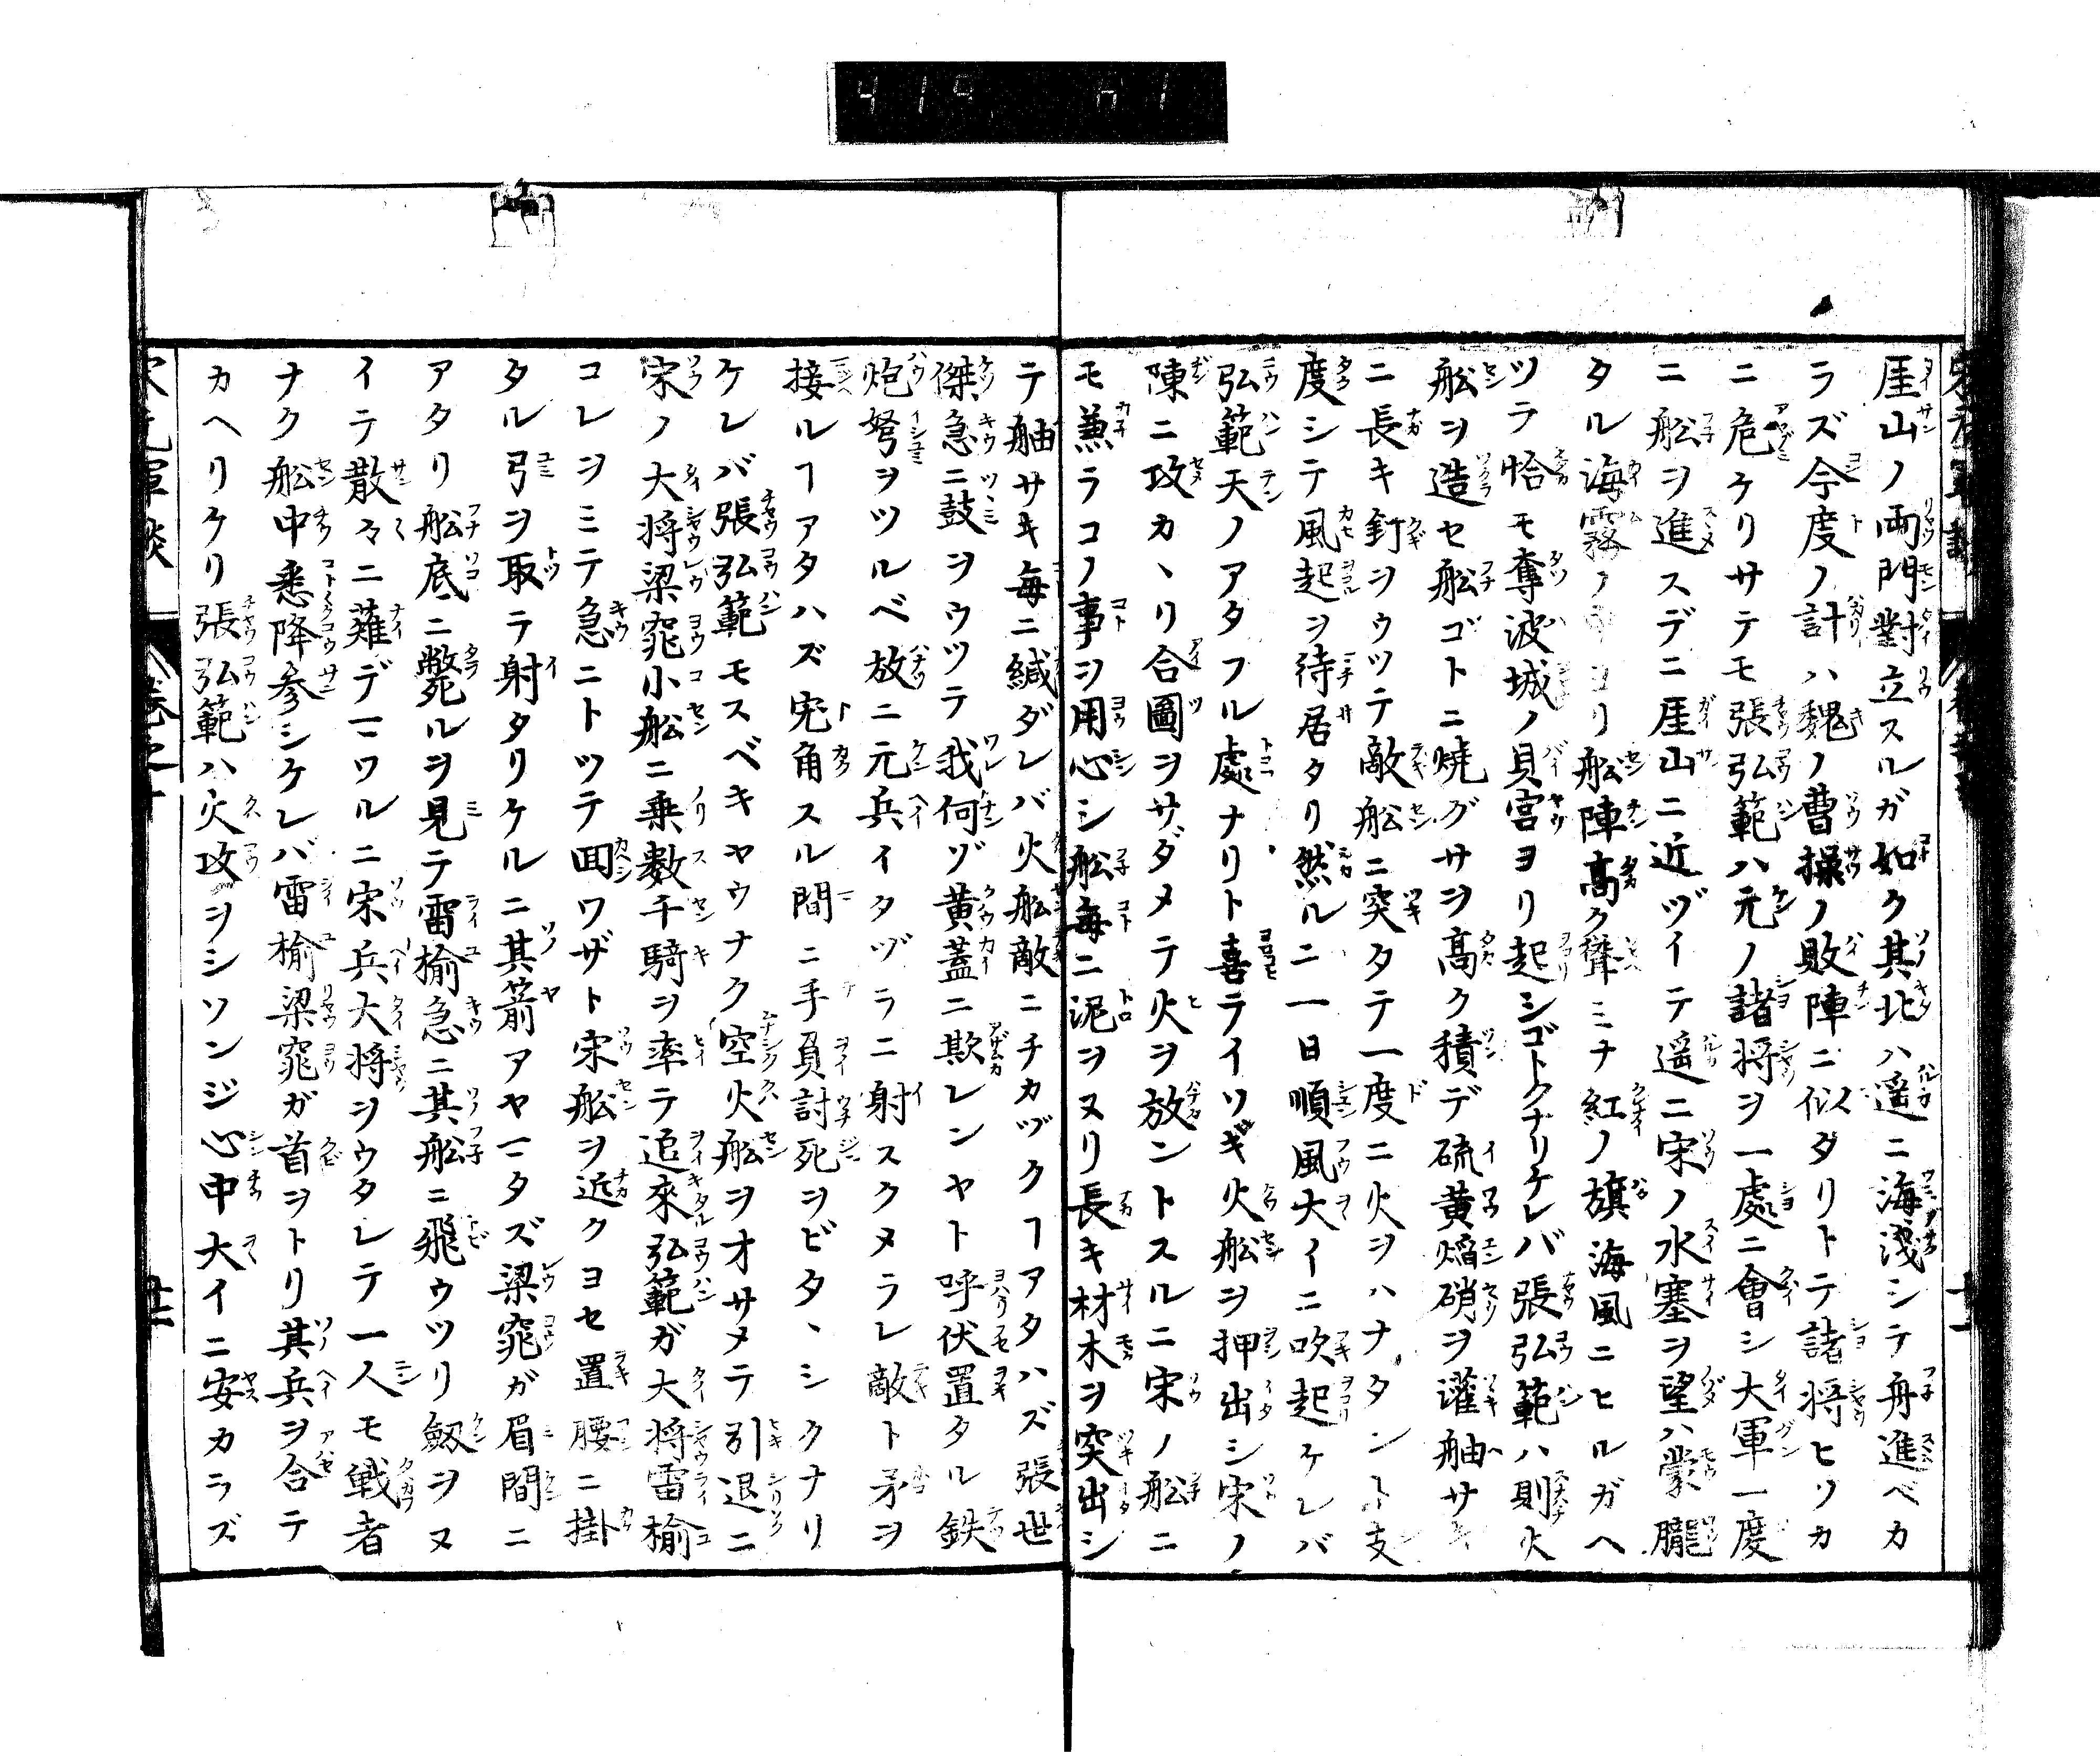 厓山ノ両門對立スルガ如ク其北ハ遥ニ海淺シテ舟進ベカ
ラズ今度ノ計ハ魏ノ曹操ノ敗陣ニ似ダリトテ諸将ヒソカ
ニ危ケリサテモ張弘範ハ元ノ諸将ヲ一處ニ會シ大軍一度
ニ舩ヲ進スデニ厓山ニ近ヅイテ遥ニ宋ノ水塞ヲ望ハ蒙朧
タル海霧ノ中ヨリ舩陣高ク聳ミナ紅ノ旗海風ニヒルガヘ
ツテ恰モ奪波城ノ貝宮ヨリ起シゴトクナリケレバ張弘範ハ則火
舩ヲ造セ舩ゴトニ焼グサヲ高ク積デ硫黄焔硝ヲ灌舳サキ
ニ長キ釘ヲウツテ敵舩ニ突タテ一度ニ火ヲハナタント支
度シテ風起ヲ待居タリ然ルニ一日順風大イニ吹起ケレバ
弘範天ノアタフル處ナリト喜テイソギ火舩ヲ押出シ宋ノ
陳ニ攻カヽリ合圖ヲサダメテ火ヲ放ントスルニ宋ノ舩ニ
モ兼ラコノ事ヲ用心シ舩毎ニ泥ヲヌリ長キ材木ヲ突出シ
テ舳サキ毎ニ緘ダレバ火舩敵ニチカヅクヿアタハズ張世
傑急ニ鼓ヲウツテ我何ゾ黄蓋ニ欺レンヤト呼伏置タル鉄
炮弩ヲツルベ放ニ元兵イタヅラニ射スクメラレ敵ト矛ヲ
接ルヿアタハズ兎角スル間ニ手負討死ヲビタヽシクナリ
ケレバ張弘範モスベキヤウナク空火舩ヲオサメテ引退ニ
宋ノ大将梁窕小舩ニ乗数千騎ヲ率テ追來弘範ガ大将雷楡
コレヲミテ急ニトツテ囬ワザト宋舩ヲ近クヨセ置腰ニ掛
タル弓ヲ取テ射タリケルニ其箭アヤマタズ梁窕ガ眉間ニ
アタリ舩底ニ斃ルヲ見テ雷楡急ニ其舩ニ飛ウツリ劔ヲヌ
イテ散々ニ薙デマワルニ宋兵大将ヲウタレテ一人モ戦者
ナク舩中悉降参シケレバ雷楡梁窕ガ首ヲトリ其兵ヲ合テ
カヘリケリ張弘範ハ火攻ヲシソンジ心中大イニ安カラズ